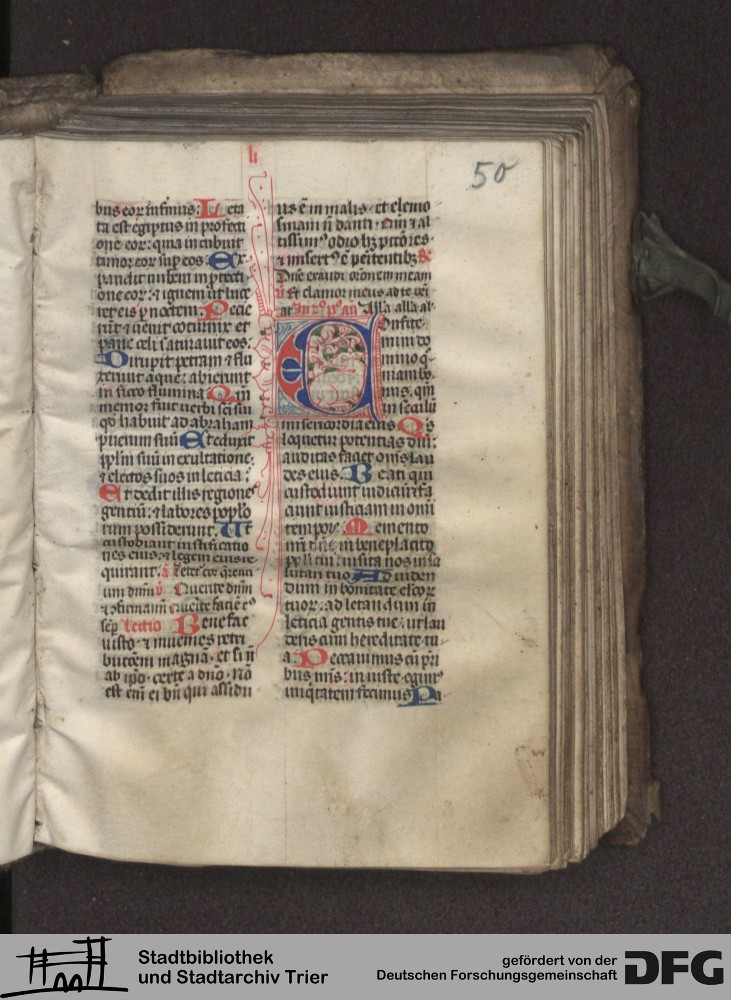 li
50
bus eoꝝ infimus: Leta
ta est egiptus in profecti
one eoꝝ: quia incubuit
timor eoꝝ sup eos. Ex
pandit nubem in ptecti
onē eoꝝ: ⁊ ignem ut luce
ret eis p noctem. Pecie
rūt ⁊ uenit coturnix et
pane celi saturauit eos.
Dirupit petram ⁊ flu
xerunt aque: abierunt
in sicco flumina Qm̄
memor fuit uerbi sc̄i sui
qd̄ habuit ad abraham
puerum suū Et eduxit
pp̄lm suū in exultatione:
⁊ electos suos in leticia:
Et dedit illis regiones
gentiū: ⁊ labores popl̓o
rum possederunt. Ut
custodiant iustificatio
nes eius: ⁊ legem eius re
quirant. a Letet᷒ cor q̄renti
um dnm̄ v̓ Querite dnm̄
⁊ ɔfirmamī querite faciē ei᷒
sēp lectio Bene fac
iusto ⁊ inuenies retri
butōem magnā et si nō
ab ip̄o certe a dno. Nō
est enī ei bn̄ qui assidu
us ē in malis et elemo
sinam nō danti Qm̄ ⁊ al
tissim᷒ odio hꝫ pctōres
⁊ misert᷒ ē penitentibꝫ R̓
Dn̄e exaudi orōnem meam
v̓ Et clamor meus ad te ueī
at In ꝫ᷒ n᷒ an̄ Alla alla al
Confite
mini do
mino q̄
niam bo
nus: qm̄
in sēculū
misericordia eius Qs
loquetur potentias dnī:
auditas faciet om̄s lau
des eius. Beati qui
custodiunt iudiciū ⁊ fa
ciunt iusticiam in om̄i
tempoꝝ Memento
nr̄i dn̄e in beneplacito
pp̄li tui: uisita nos in sa
lutari tuo Ad uiden
dum in bonitate elcōꝝ
tuoꝝ: ad letandum in
leticia gentis tue: ut lau
deris cum hereditate tu
a. Peccauimus cū pri
bus nr̄is: iniuste egim᷒
iniq̄tatem fecimus Pa
Stadtbibliothek
und Stadtarchiv Trier
gefördert von der
Deutschen Forschungsgemeinschaft
DFG